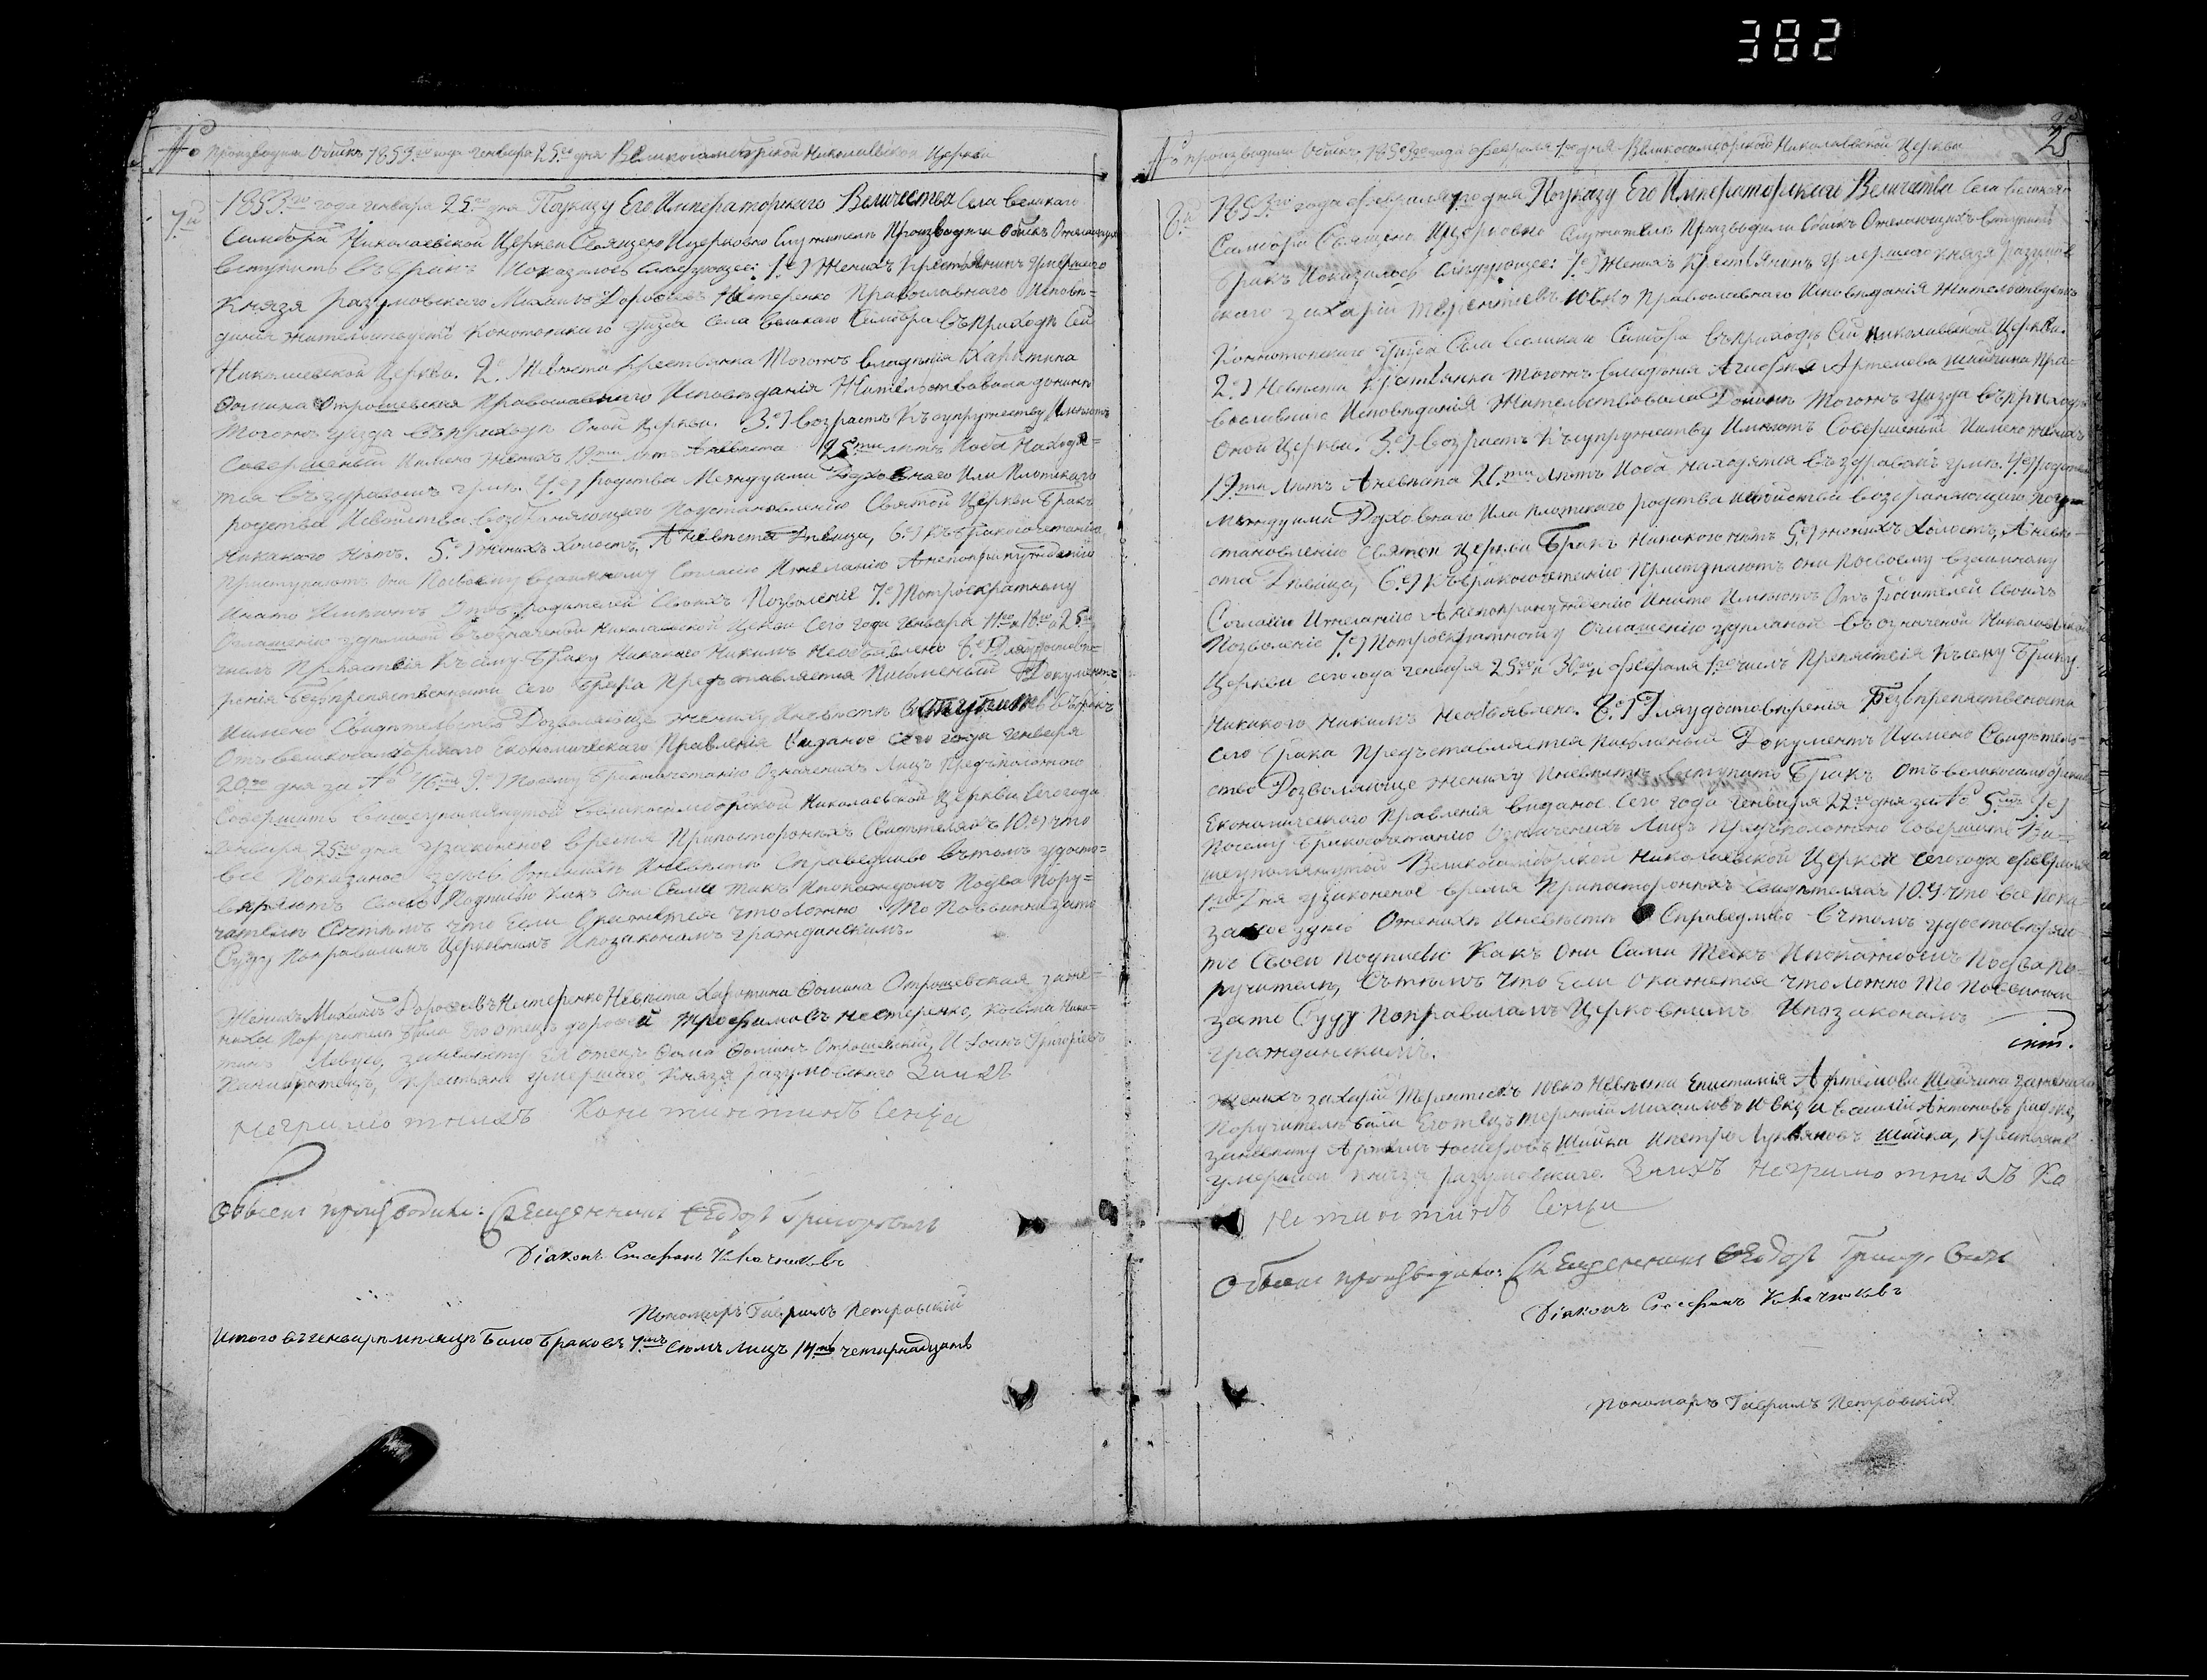 382
№ Производили Обыскъ 1853го года генваря 25го дня Великосамборской Николаевской Церкви
7й
1853го года генваря 25го дня Поуказу Его Императорскаго Величества Села великаго
Самбора Николаевской Церкви Священо Ицерковно Служители Производили обыскъ Ожелающихъ
вступить въ бракъ Ноказалось следующее: 1е) Женихъ Крестьянинъ Умершаго
Князя разумовскаго Михаилъ Дорофеевъ Нестеренко Православнаго Исповѣ=
данія жительствуетъ Конотопскаго уезда Села великаго Самбора въ приходѣ Сей
Николаевской Церкви. 2е) Невѣста крестьянка Тогожъ владѣнія Харитина
Фомина Отрошевская Православнаго Исповѣданія Жительствовала донинѣ
Тогожъ уезда въ приходѣ Оной Церкви. 3е) возрастъ Къ супружеству Имеютъ
Совершеный Имено Женихъ 19ть лѣтъ Аневѣста 25ть лѣтъ Иоба Находя=
тся въ здравомъ умѣ. 4е) родства Междуими Духовнаго Или Плотскаго
родства Исвойства возбраняющаго Поустановленію Святой Церкви бракъ
Никакого нѣтъ. 5е) Женихъ холостъ, Аневѣста Девица, 6е) Къ бракосочетанію
Приступаютъ они Посвоему взаимному Согласію Ижеланію Анепопринужденію
Инато Имеютъ Отъ родителей Своихъ Позволеніе 7е) Потроекратному
Оглашенію зделаной въ означеной Николаевской Церкви Сего года генваря 11го 18го и 25го
числъ Препятствія Къ сему браку Никакого Никимъ Необъявлено 8е) Для удостове=
ренія безпрепятственности Сего брака Представляется Письменый Документъ
Имено Свидетельство Дозволяюще жениху Иневѣстѣ вступить въ бракъ
Отъ великосамборскаго Економическаго Правленія Виданое сего года генваря
20го дня за № 46м 9е) Посему бракосочетанію Означеныхъ Лицъ Предположено
Совершить вишеупомянутой великосамборской Николаевской Церкви Сегогода
генваря 25го дня узаконеное время Припосторонихъ Свидетеляхъ 10е) что
все Показаное здѣсь Оженихѣ Иневѣстѣ Справедливо въ томъ удосто=
веряютъ Своею Подписью Какъ Они Сами такъ Ипокаждомъ Подва Пору=
чатели Съ тѣмъ что Если Окажется что ложно То Повинни зато
Суду Поправиламъ Церковнимъ Ипозаконамъ гражданскимъ.
Женихъ Михаилъ Дорофеевъ Нестеренко Невѣста Харитина Фомина Отрошевская зажени=
ниха Поручители били Его отецъ дорофей Трофимовъ нестеренко, Косьма Ники=
зане вѣсту Ея отецъ Фома Фоминъ Отрошевскій, И Фока Григоріевъ
крестьяне умершаго Князя разумовскаго Занихъ
Неграмотнихъ Константинъ Сенци
Обыскъ производили: Священникъ Ѳеодоръ Григоровичъ
Діаконъ Стефанъ Ключниковъ
Пономаръ Гавриилъ Петровскій
Итого въ генварѣ мѣсяцѣ било браковъ 7мь Сюмъ Лицъ 14ть четирнадцать
25
№ Производили Обыскъ 1853го года февраля 1го дня Великосамборской Николаевской Церкви
8й
1853го года февраля 1го дня Поуказу Его Императорскаго Величества Села великаго
Самбора Священо Ицерковно Служители Производили Обыскъ Ожелающихъ вступить
бракъ Иоказалось Следующее: 1е) Женихъ Крестьянинъ умершаго князя разумов
скаго захарій терентіевъ Ювко Православнаго Исповѣданія Жительствуетъ
Конотопскаго уезда Села великаго Самбора въ приходѣ Сей николаевской Церкви.
2е) Невѣста крестьянка тогожъ владѣнія Артемова Шийчина Пра=
вославнаго Исповѣданія Жительствовала Донинѣ Тогожъ уезда въ приходѣ
Оной Церкви. 3е) возрастъ Къ супружеству Имеютъ Совершеный Имено женихъ
19ть Лѣтъ Аневѣста 21ть Лѣтъ Иоба находятся въ здравомъ умѣ. 4е) родства
Междуими Духовнаго Или плотскаго родства Исвойства возбраняющаго поу=
становленію Святой Церкви бракъ Никакого нѣтъ 5е) женихъ холостъ, Аневѣ=
ста Девица, 6е) Къ бракосочетанію Приступаютъ они Посвоему взаимному
Согласію Ижеланію Анепопринужденію Инато Имеютъ Отъ родителей Своихъ
Позволеніе 7е) Потроекратному Оглашенію зделаной въ означеной Николаевской
Церкви сего года генваря 25го и 30го и февраля 1го числъ Препятствія Къ сему браку
Никакого Никимъ Необъявлено. 8е) Для удостовѣренія безпрепятствености
Сего брака Представляется письменый Документъ Имено Свидетель=
ство Дозволяюще жениху Иневѣстѣ вступить бракъ Отъ великосамборскаго
Економическаго Правленія виданое Сего года генваря 22го дня за № 5мъ 9е)
Посему бракосочетанію Означеныхъ Лицъ Предположено Совершить Ви=
шеупомянутой Великосамборской Николаевской Церкви сегогода февраля
1го Дня узаконеное время Припосторонихъ Свидетеляхъ 10е) что все пока
заное здѣсь Оженихѣ Иневѣстѣ Справедливо в томъ удостоверяю
тъ Своею Подписью Какъ Они Сами Такъ Ипокаждомъ Подва По=
ручители, Съ тѣмъ что Если Окажется что ложно То повинни
зато Суду Поправиламъ Церковнимъ Ипозаконамъ
гражданскимъ.
Женихъ захарій Терентіевъ Ювко Невѣста Епистимія Артемова Шийчина зажениха
Поручители били Его отецъ терентій Михаиловъ Ювко, И василій Антоновъ
заневѣсту Артемъ Шийка Ипетро Лукяновъ Шийка, крестьяне
умершаго князя разумовскаго. Занихъ неграмотнихъ Ко
нстантинъ Сенци
Обыскъ производили: Священникъ Ѳеодоръ Григоровичъ
Діаконъ Стефанъ Ключниковъ
Пономаръ Гавриилъ Петровскій